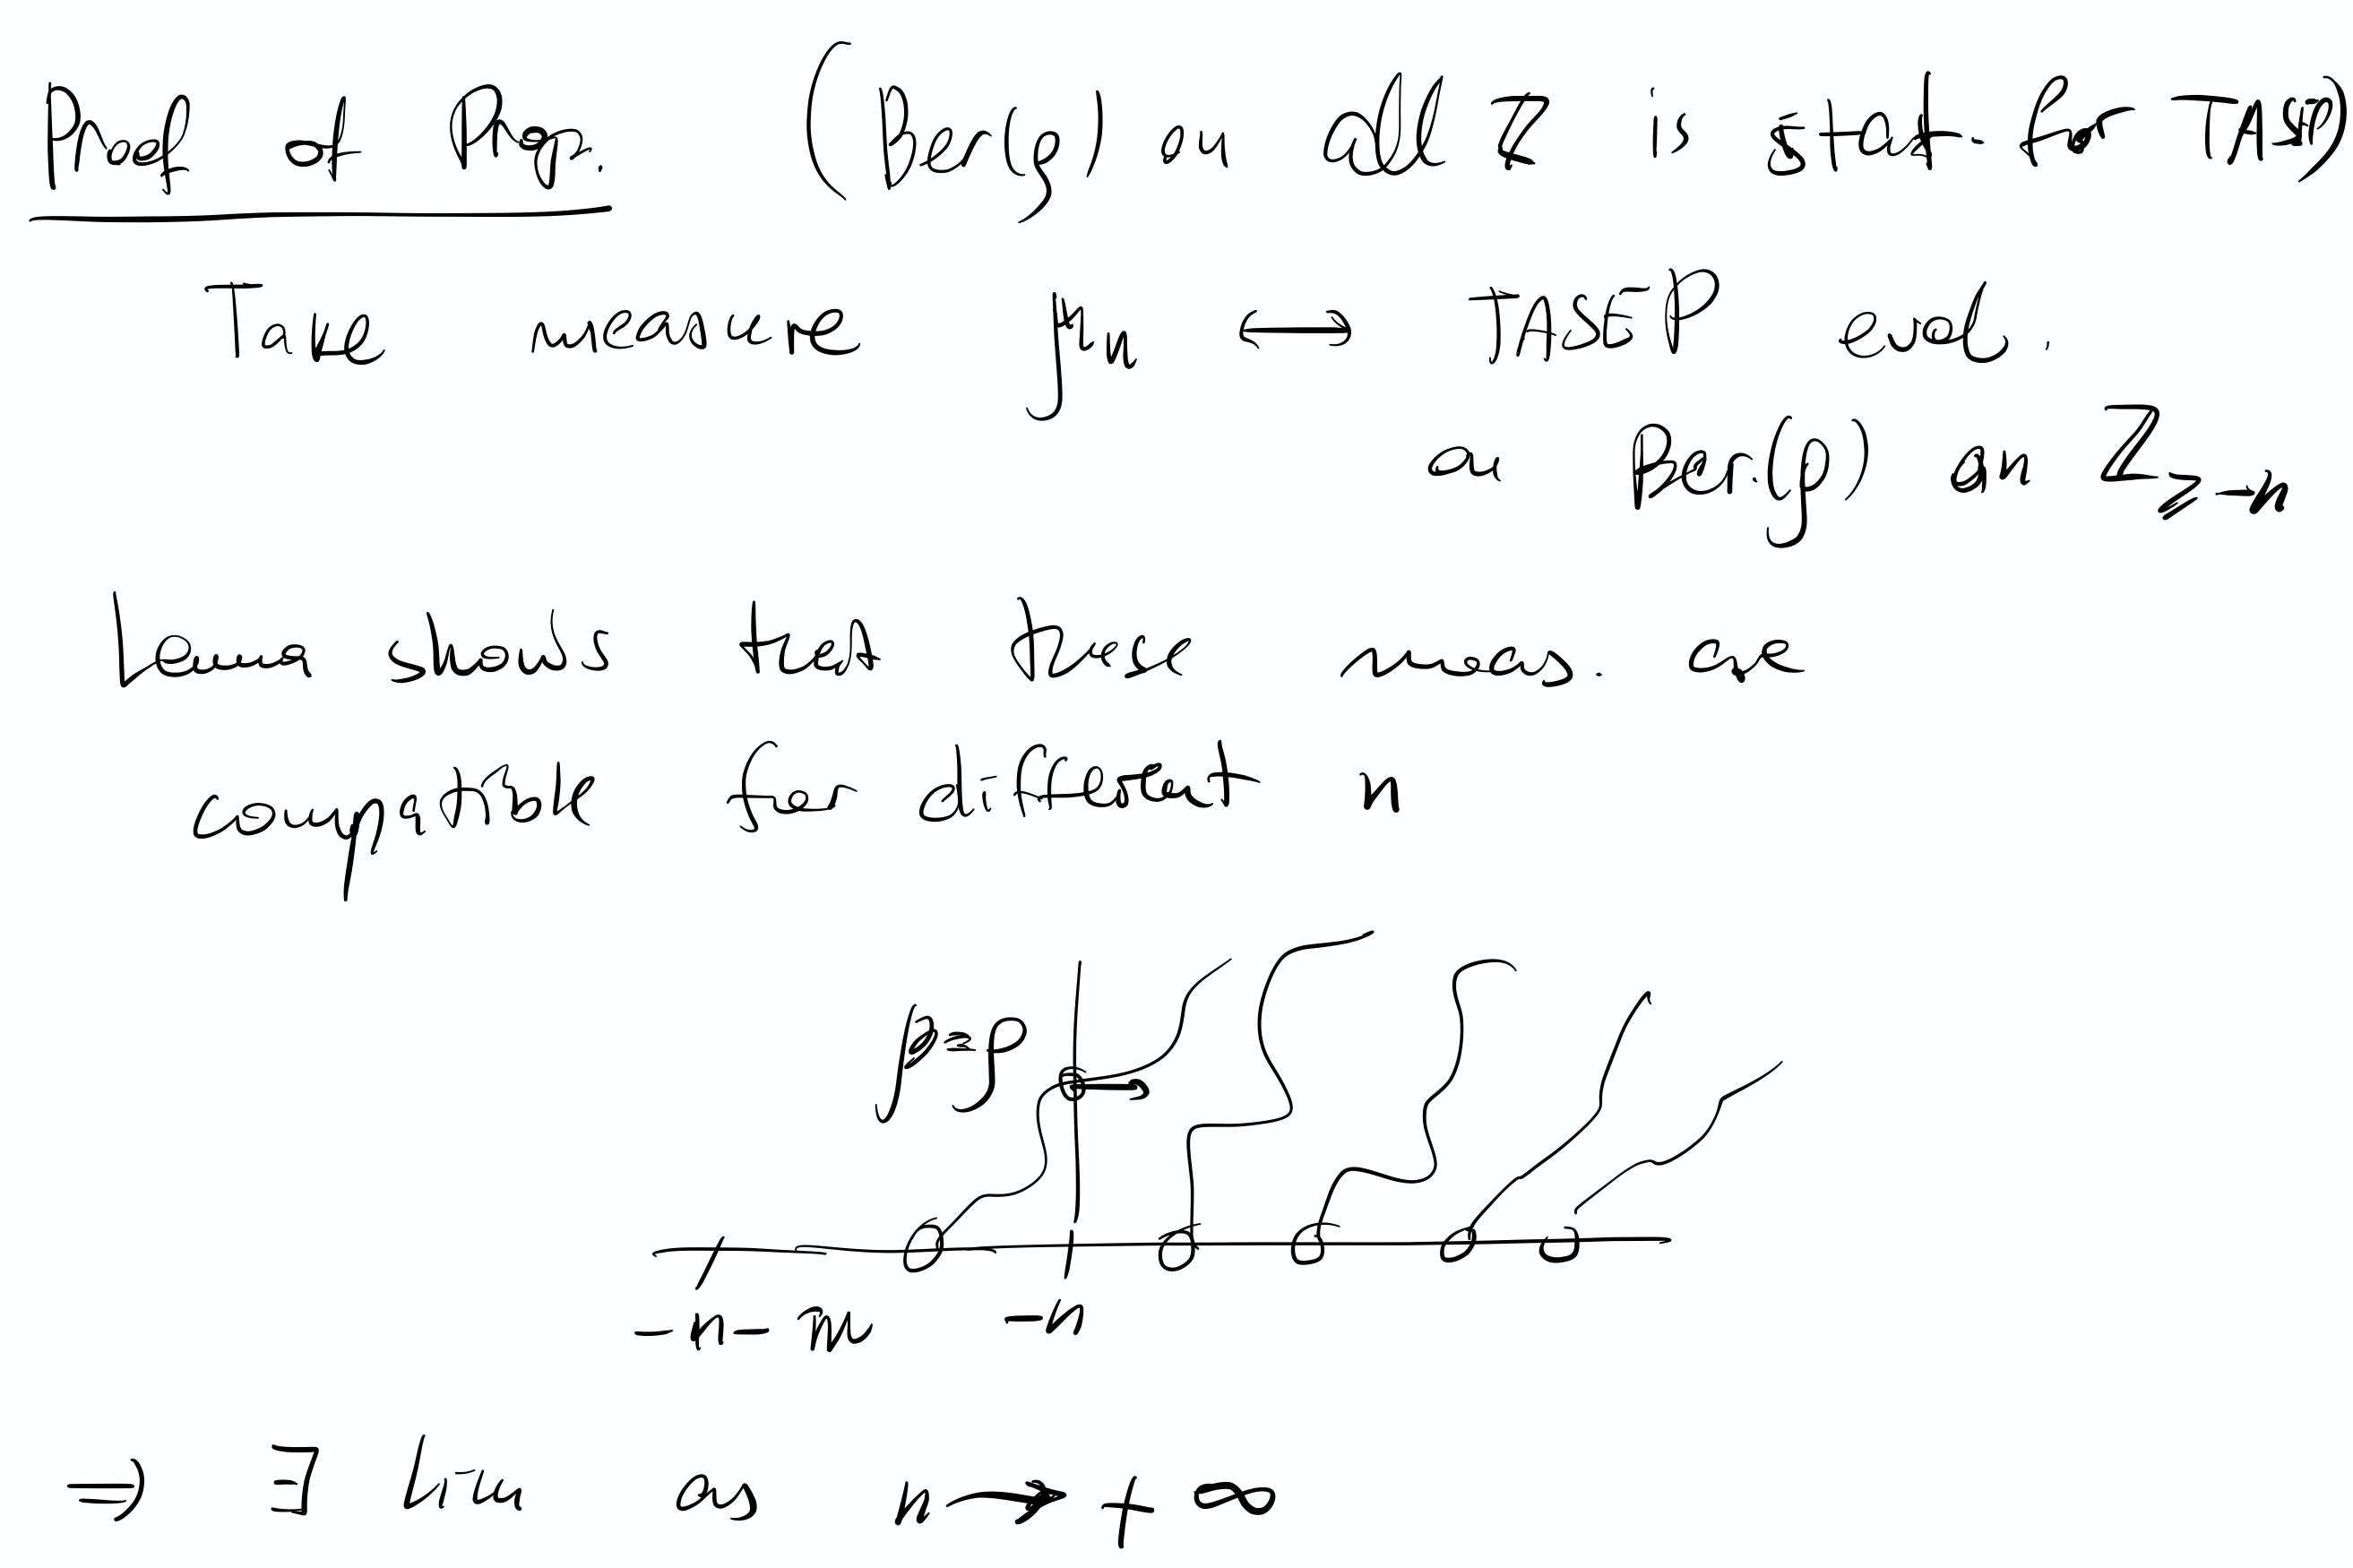 Proof of Prop. (Ber(ρ) on all ℤ is stat. for TASEP)
Take measure μₙ ← TASEP evol.
on Ber.(ρ) on ℤ≥-n
Lemma shows that these meas. are
compatible for different n
β=ρ
-n-m -n
⇒ ∃ lim as n→+∞